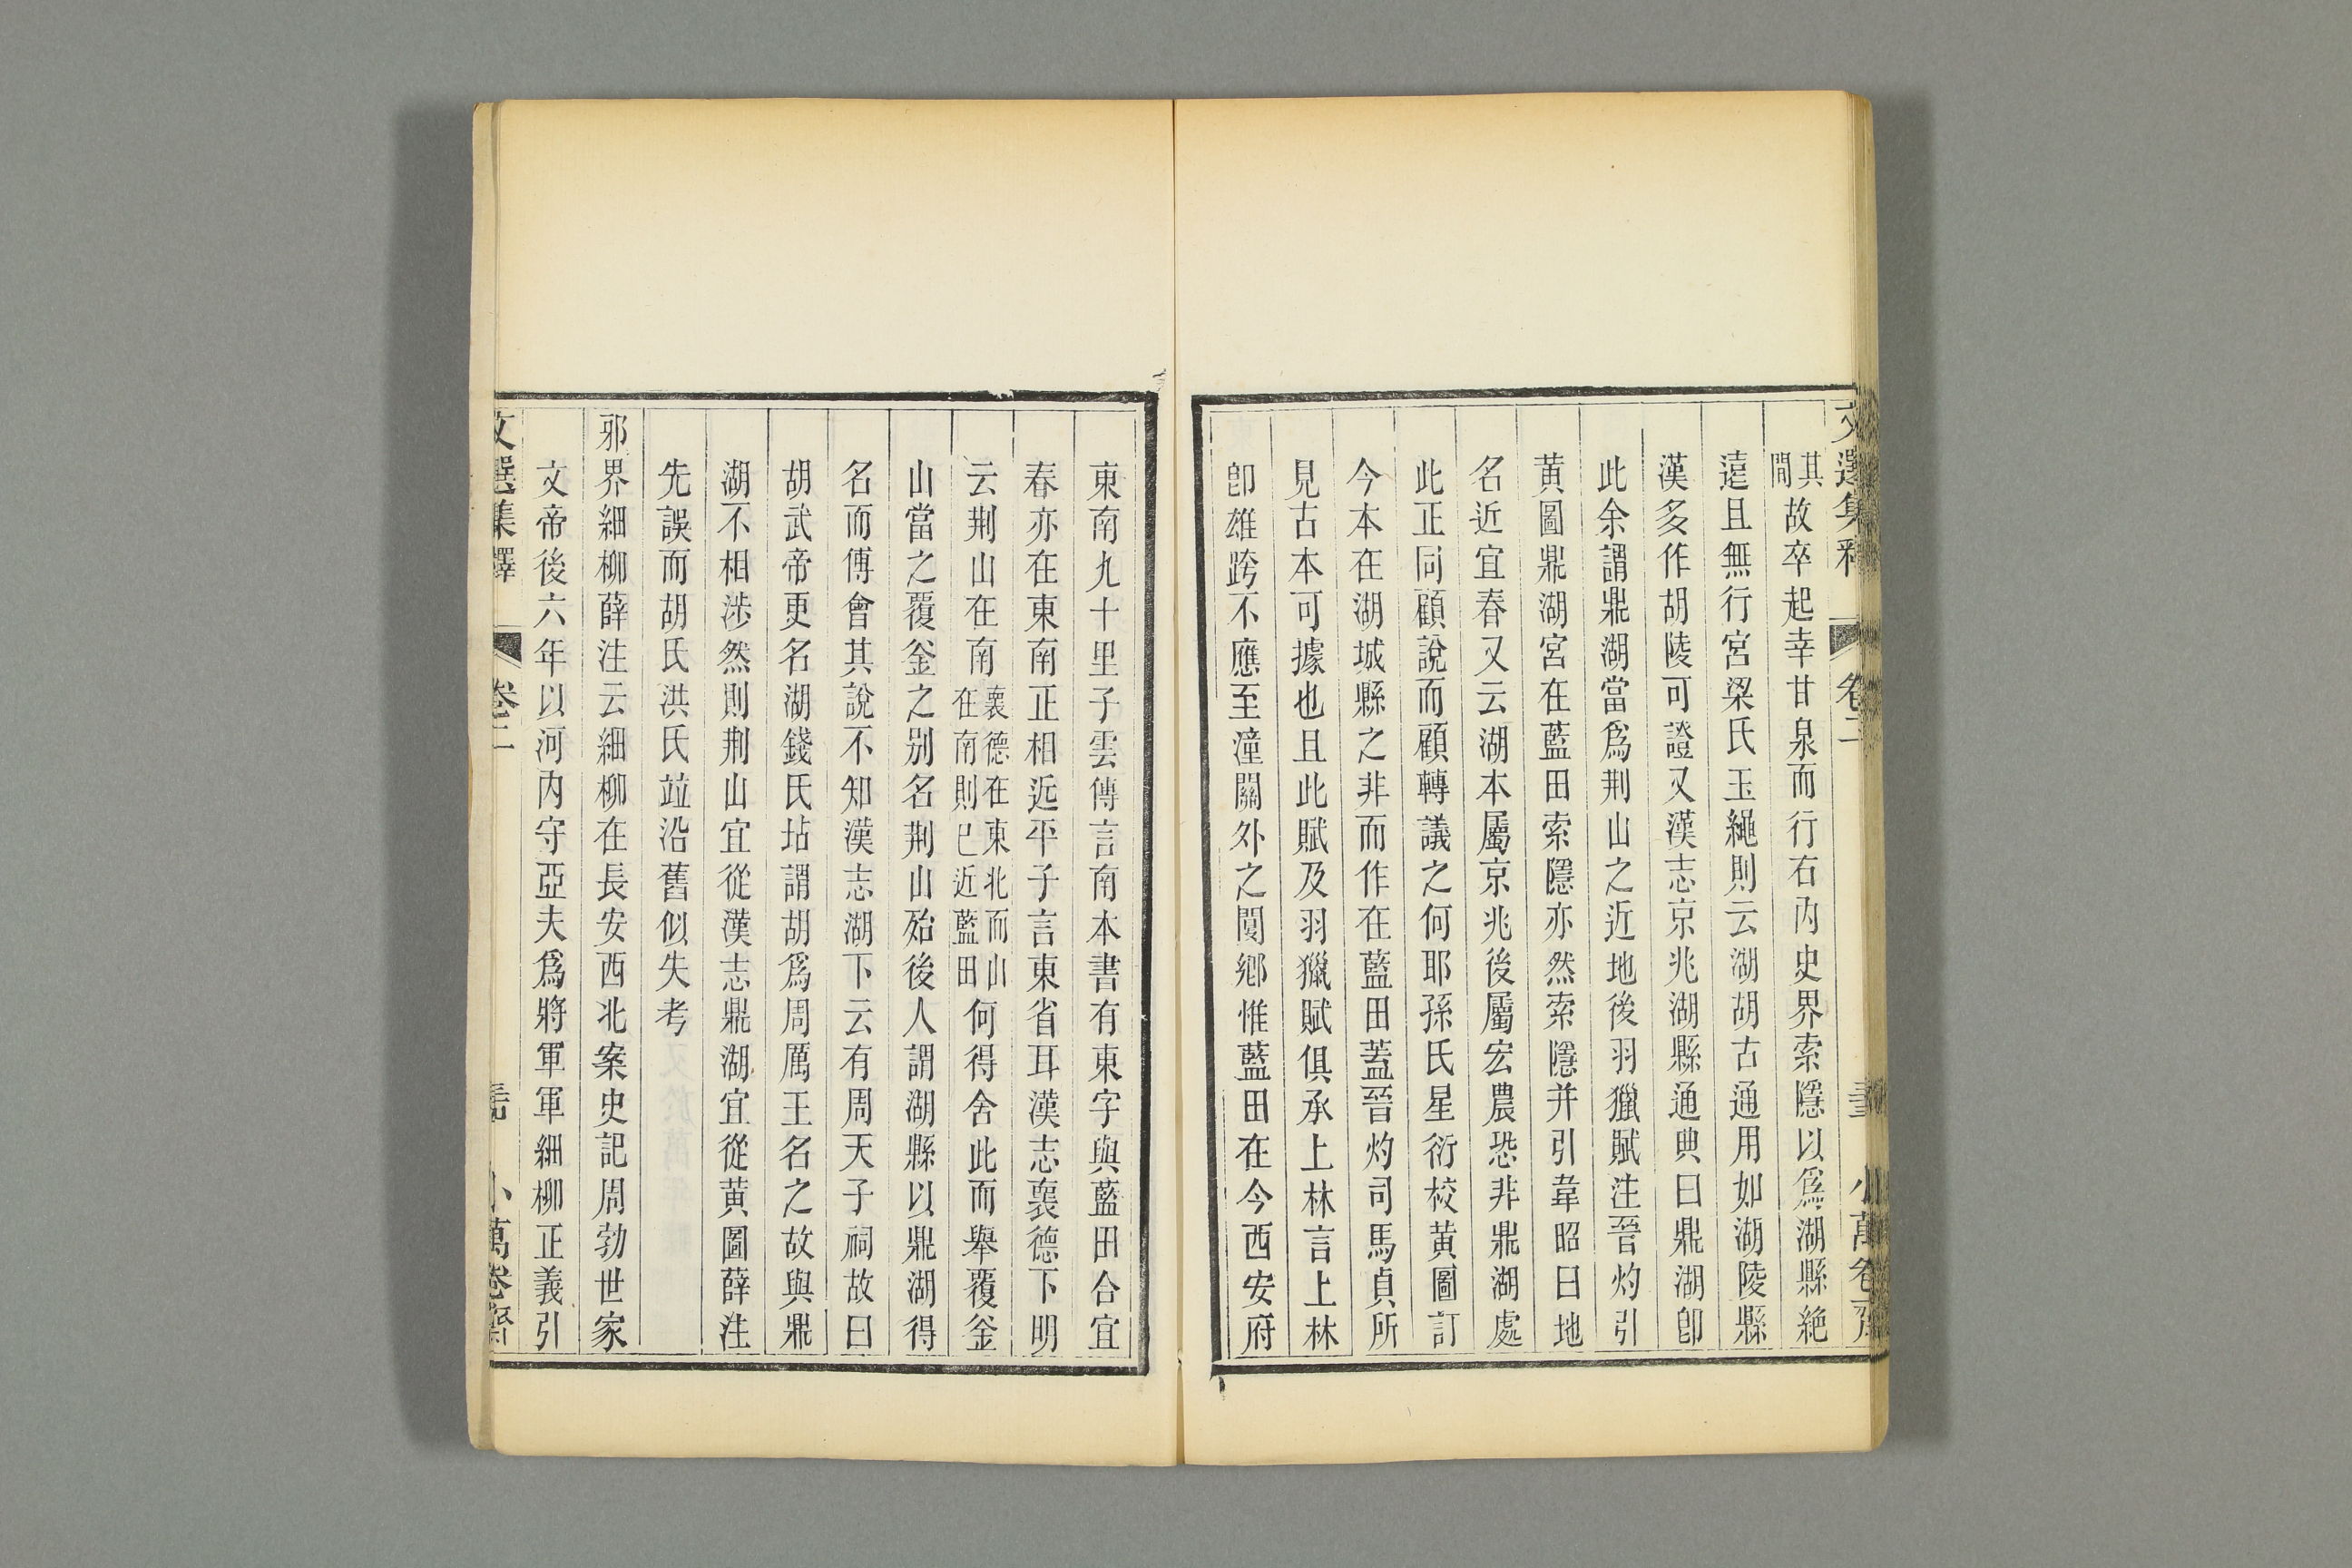 文選集釋 卷二 小萬卷齋
其間故卒起幸甘泉而行右內史界索隱以爲湖縣絶
遠且無行宮梁氏玉繩則云湖胡古通用如湖陵縣
漢多作胡陵可證又漢志京兆湖縣通典曰鼎湖卽
此余謂鼎湖當爲荆山之近地後羽獵賦注晉灼引
黄圖鼎湖宮在藍田索隱亦然索隱并引韋昭曰地
名近宜春又云湖本屬京兆後屬宏農恐非鼎湖處
此正同顧說而顧轉議之何耶孫氏星衍校黄圖訂
今本在湖城縣之非而作在藍田蓋晉灼司馬貞所
見古本可據也且此賦及羽獵賦俱承上林言上林
卽雄跨不應至潼關外之閿鄕惟藍田在今西安府
東南九十里子雲傳言南本書有東字與藍田合宜
春亦在東南正相近平子言東省耳漢志襄德下明
云荆山在南襄德在東北而山在南則已近藍田何得舍此而舉覆釡
山當之覆釡之别名荆山殆後人謂湖縣以鼎湖得
名而傅會其說不知漢志湖下云有周天子祠故曰
胡武帝更名湖錢氏坫謂胡爲周厲王名之故與鼎
湖不相涉然則荆山宜從漢志鼎湖宜從黄圖薛注
先誤而胡氏洪氏竝沿舊似失考
邪界細柳薛注云細柳在長安西北案史記周勃世家
文帝後六年以河內守亞夫爲將軍軍細柳正義引
文選集釋 卷二 小萬卷齋